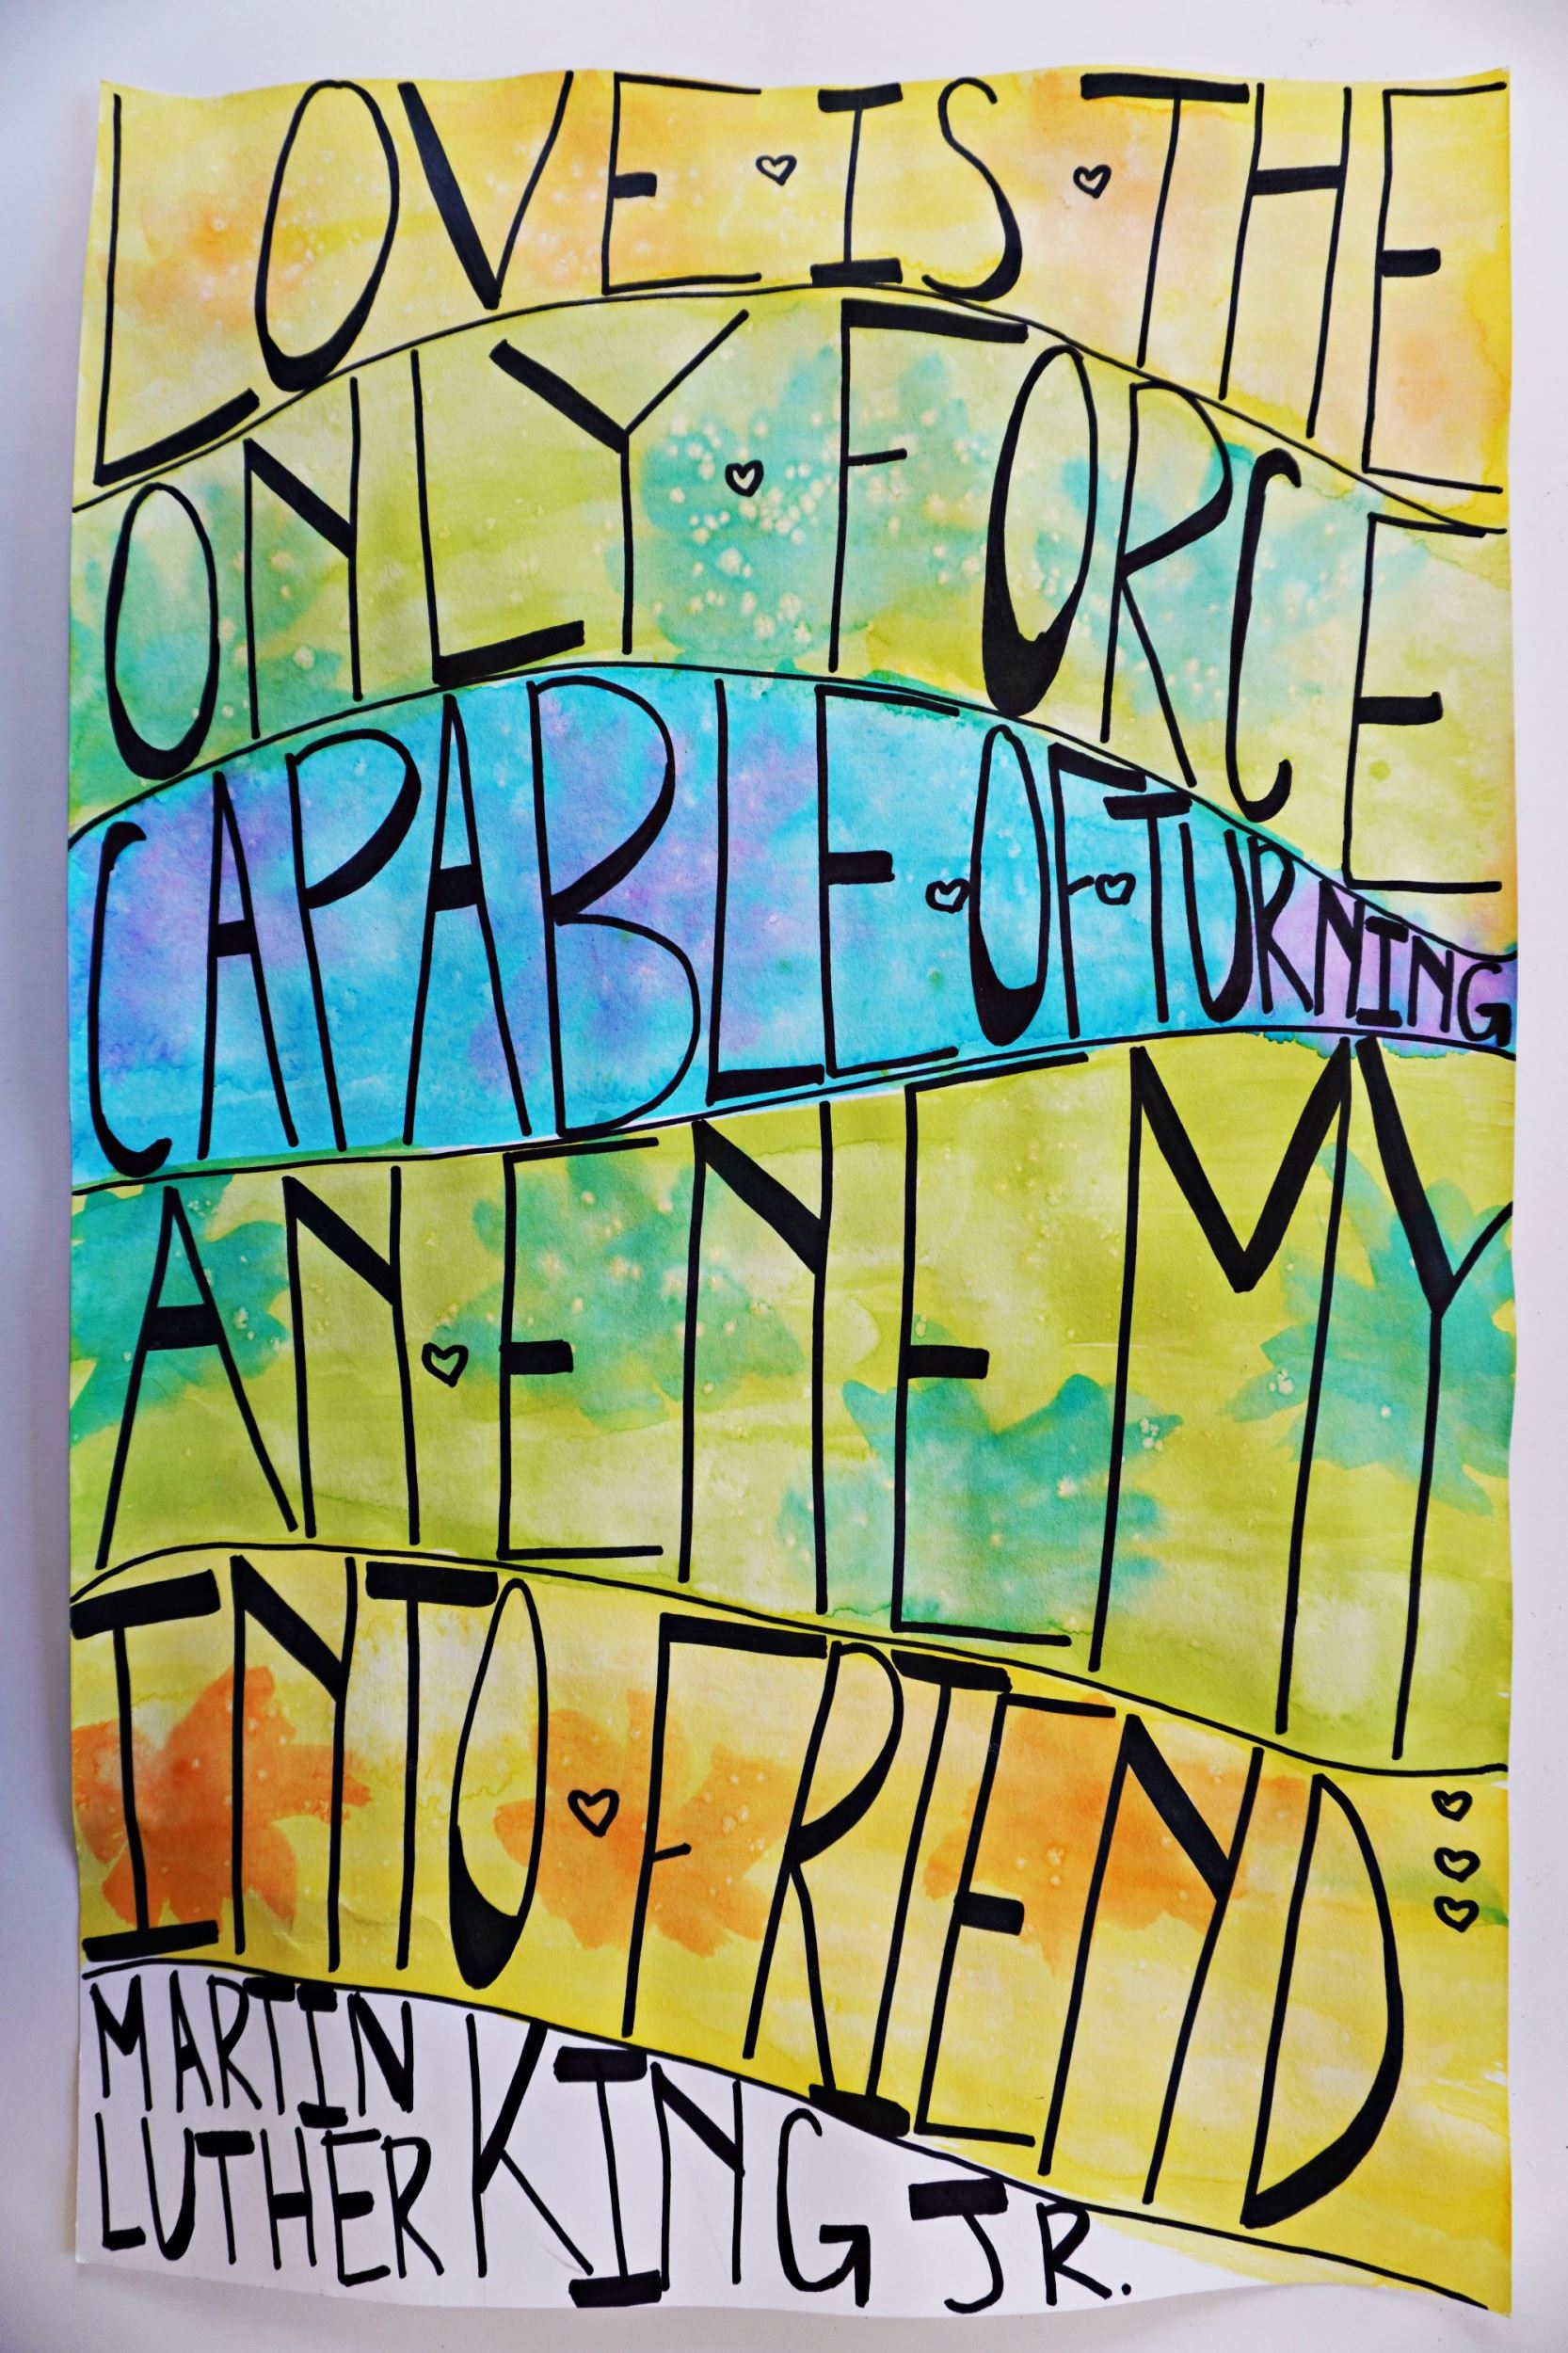 LOVE IS THE
ONLY FORCE
CAPABLE OF TURNING
AN ENEMY
INTO FRIEND
MARTIN
LUTHER KING JR.